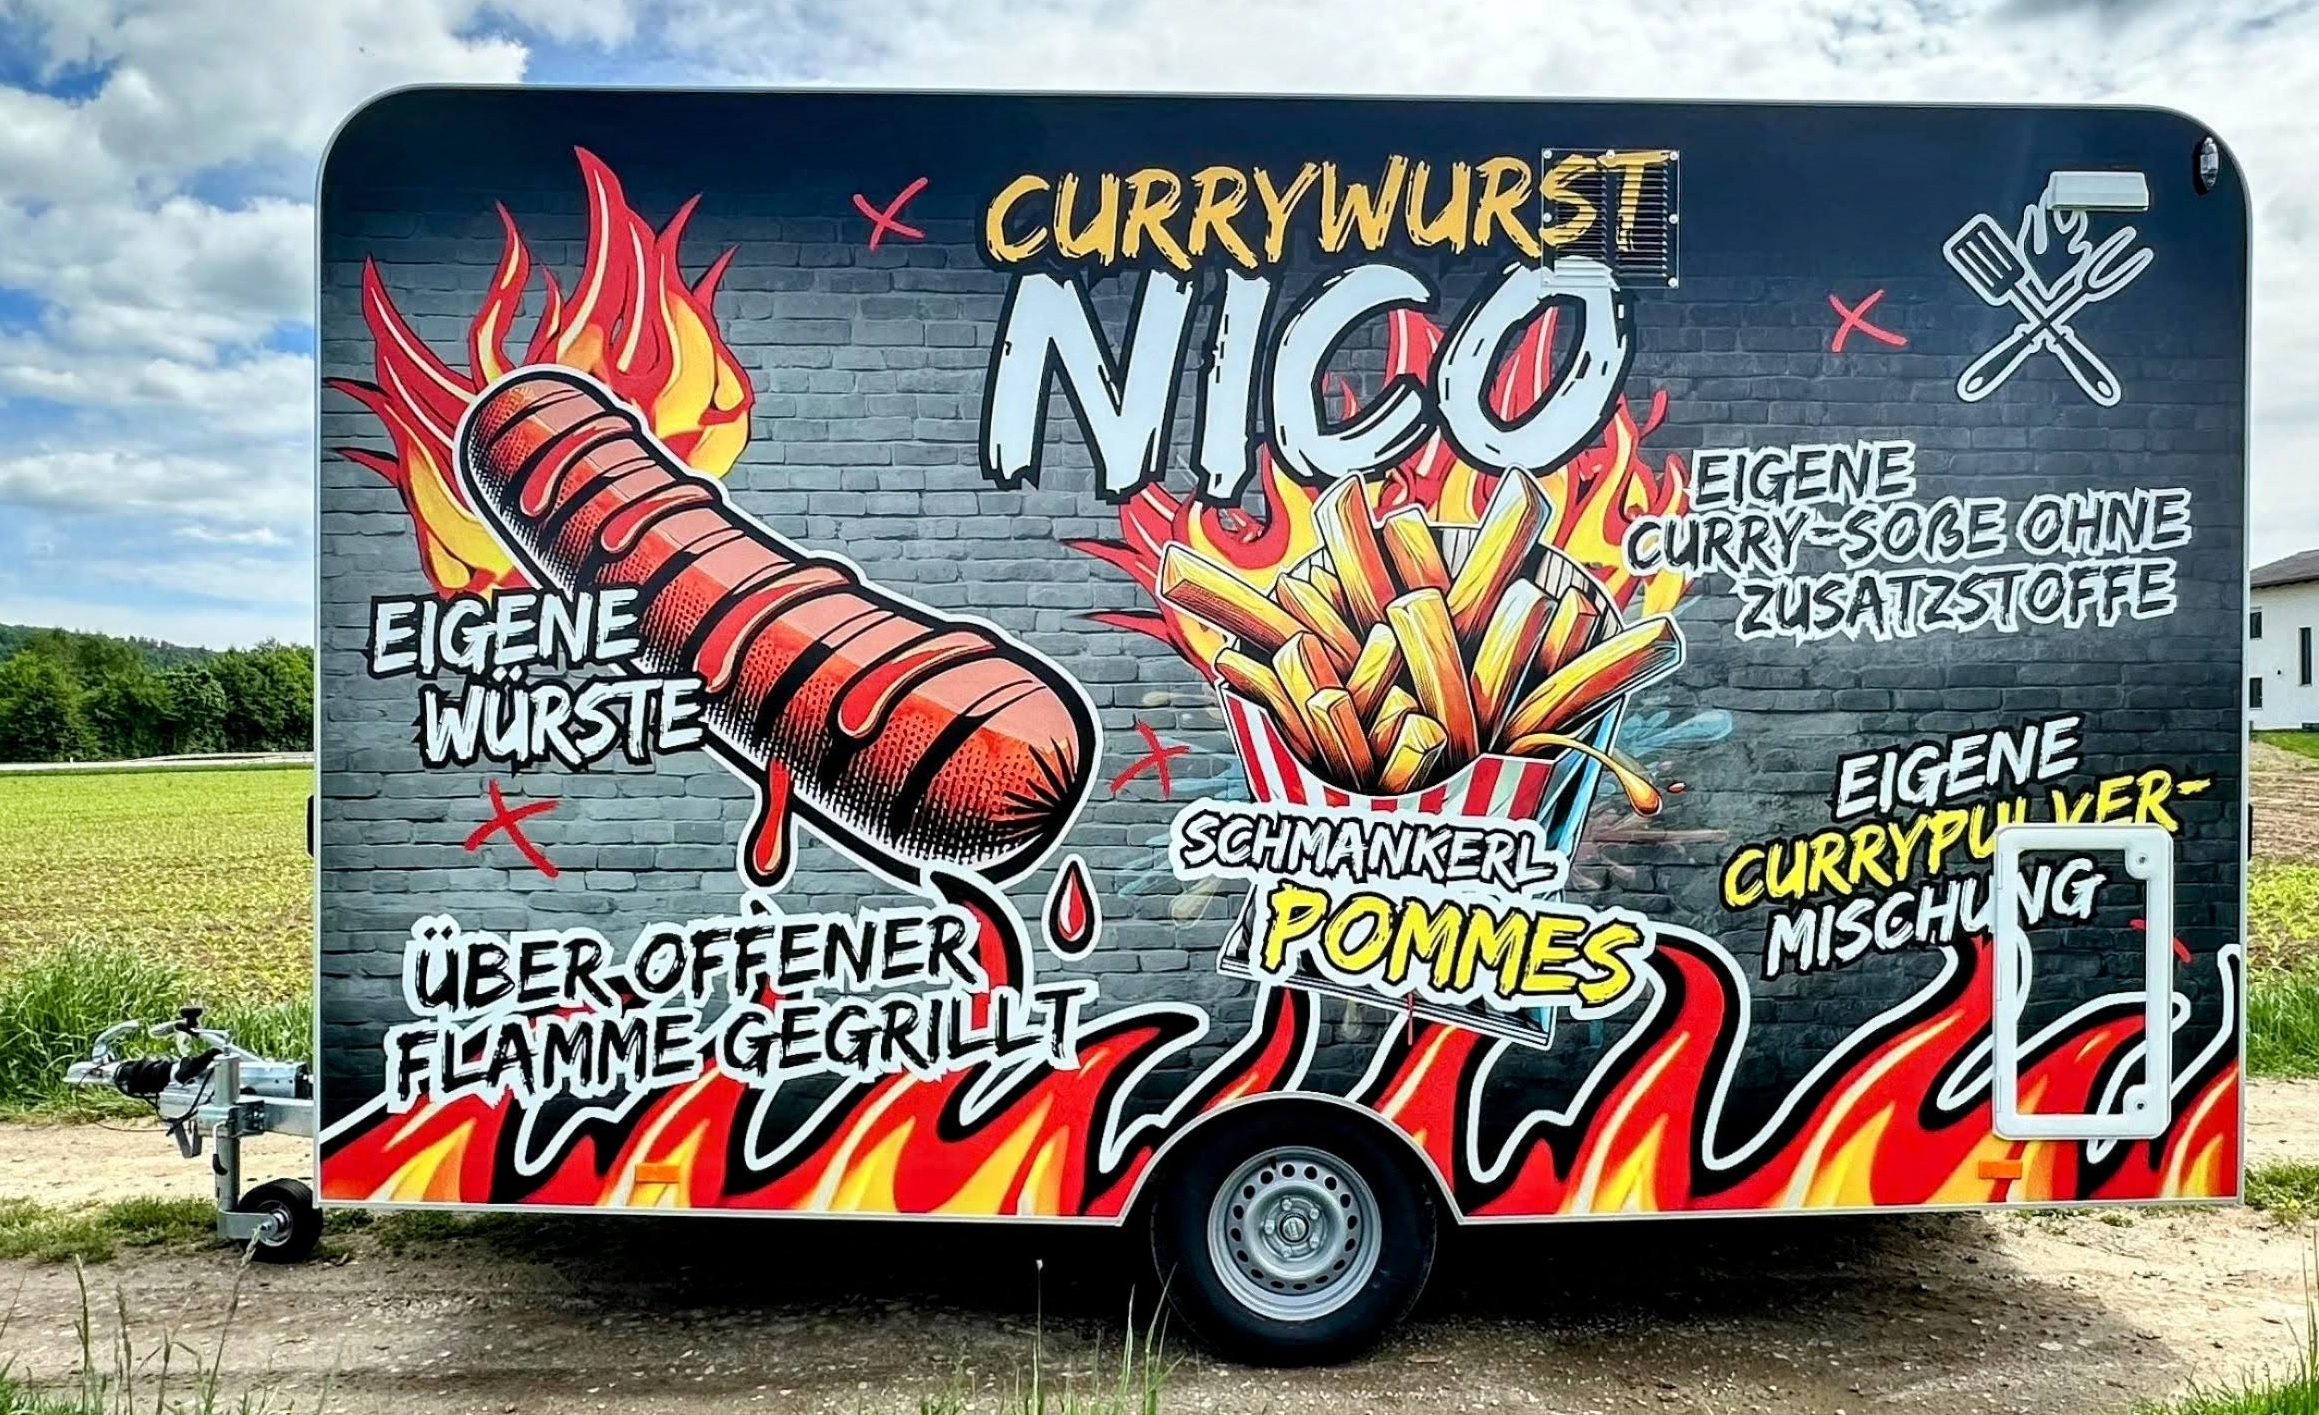 CURRYWURST
NICO
EIGENE
WÜRSTE
ÜBER OFFENER
FLAMME GEGRILLT
SCHMANKERL
POMMES
EIGENE
CURRY-SOßE OHNE
ZUSATZSTOFFE
EIGENE
CURRYPULVER-
MISCHUNG